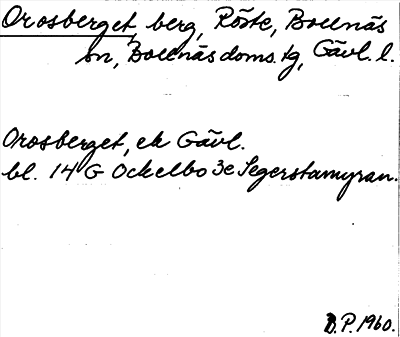 Orosberget, berg, Röste, Bollnäs
sn, Bollnäs doms. tg, Gävl. l.
Orosberget, ek Gävl.
bl. 14 G Ockelbo 3e Segerstamyran.
B.P. 1960.